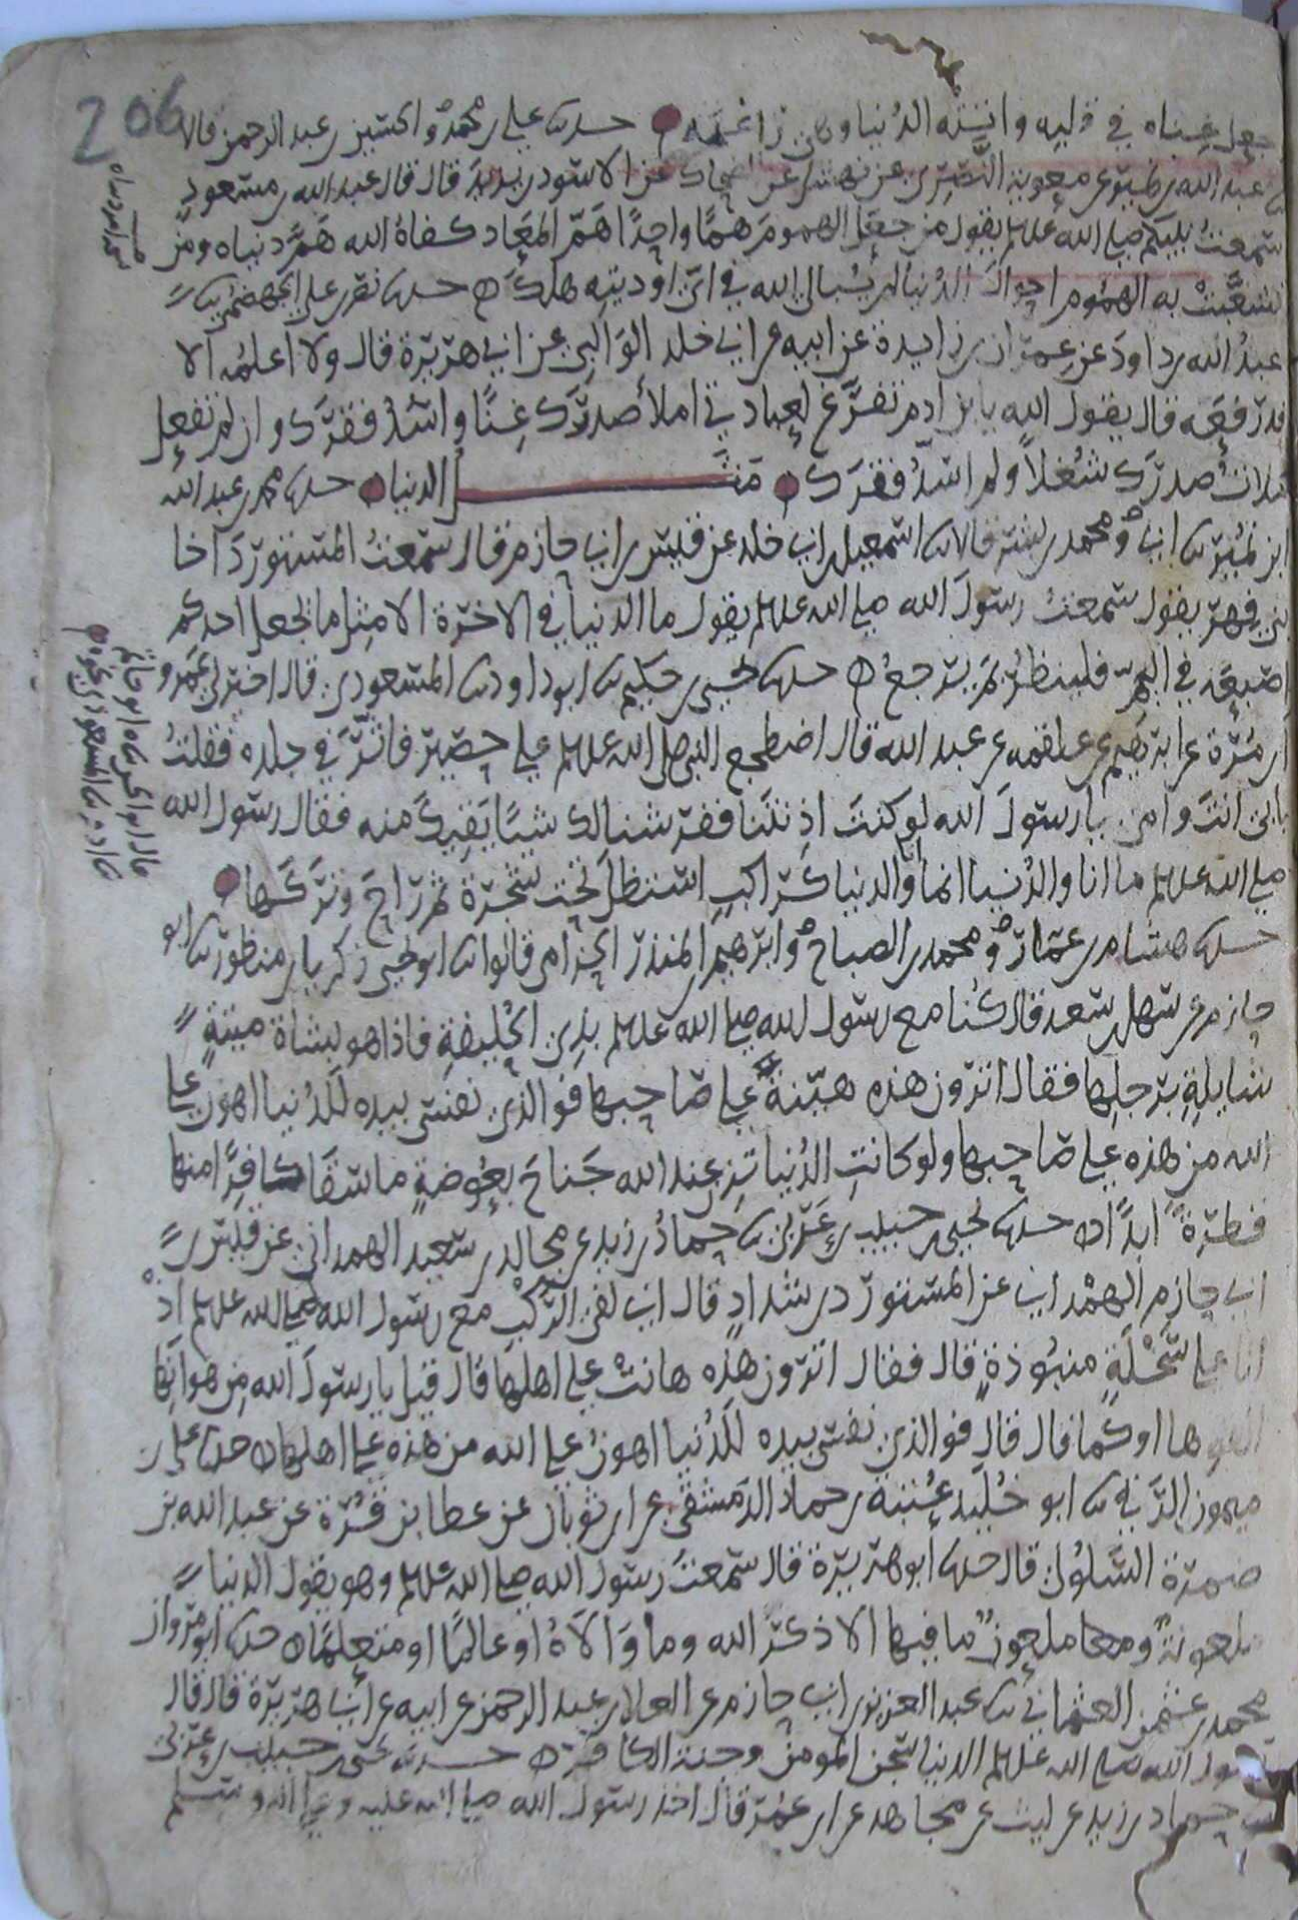 206
جعل غناه في قلبه واتته الدنيا وهي زاغمه حدثنا علي بن محمد والحسين بن عبد الرحمن قالا
عبد الله بن نمير عن معوية النصري عن نهشل عن الضحاك عن الاسود بن يزيد قال قال عبد الله بن مسعود
سمعت نبيكم صلى الله عليه وسلم يقول من جعل الهموم همًا واحدًا هم المعاد كفاه الله هم دنياه ومن
تشعبت به الهموم احوال الدنيا لم يبال الله في اي اوديته هلك حدثنا نصر بن علي الجهضمي ثنا
عبد الله بن داود عن عمران بن زايدة عن ابيه عن ابي خلد الوالبي عن ابي هريرة قال ولا اعلمه الا
قد رفعه قال يقول الله يا بن ادم تفرغ لعبادتي املأ صدرك غنًا واسد فقرك وان لم تفعل
ملات صدرك شغلاً ولم اسد فقرك مثل الدنيا حدثنا محمد بن عبد الله
ابن نمير ثنا ابي ومحمد بن بشر قالا ثنا اسمعيل بن ابي خلد عن قيس بن ابي حازم قال سمعت المستورد اخا
بني فهر يقول سمعت رسول الله صلى الله عليه وسلم يقول ما الدنيا في الاخرة الا مثل ما يجعل احدكم
اصبعه في اليم فلينظر بم يرجع حدثنا يحيى بن حكيم ثنا ابو داود ثنا المسعودي قال اخبرني عمرو
بن مرة عن ابرهيم عن علقمه عن عبد الله قال اضطجع النبي صلى الله عليه وسلم على حصير فاثر في جلده فقلت
بابي انت وامي يا رسول الله لو كنت اذنتنا ففرشنا لك شيًا يقيك منه فقال رسول الله
صلى الله عليه وسلم ما انا والدنيا انما انا والدنيا كراكب استظل تحت شجرة ثم راح وتركها
حدثنا هشام بن عمار ومحمد بن الصباح وابرهيم بن المنذر الحزامي قالوا ثنا ابو يحيى زكريا بن منظور ثنا ابو
حازم عن سهل بن سعد قال كنا مع رسول الله صلى الله عليه وسلم بذي الحليفة فاذا هو بشاة ميتة
شايلة برجلها فقال اترون هذه هينة على صاحبها فوالذي نفسي بيده للدنيا اهون على
الله من هذه على صاحبها ولو كانت الدنيا تزن عند الله جناح بعوضة ما سقا كافرًا منها
قطرة ابدًا حدثنا يحيى بن حبيب بن عربي ثنا حماد بن زيد عن مجالد بن سعيد الهمداني عن قيس بن
ابي حازم الهمداني عن المستورد بن شداد قال اني لفي الركب مع رسول الله صلى الله عليه وسلم اذ
اتا على سخلة منبوذة قال فقال اترون هذه هانت على اهلها قال قيل يا رسول الله من هوانها
القوها او كما قال قال فوالذي نفسي بيده للدنيا اهون على الله من هذه على اهلها حدثنا علي بن
ميمون الرقي ثنا ابو خليد عتبة بن حماد الدمشقي عن ابن ثوبان عن عطا بن قرة عن عبد الله بن
ضمرة السلولي قال حدثنا ابو هريرة قال سمعت رسول الله صلى الله عليه وسلم وهو يقول الدنيا
ملعونة ملعون ما فيها الا ذكر الله وما والاه او عالمًا او متعلمًا حدثنا ابو مروان
محمد بن عثمن العثماني ثنا عبد العزيز بن ابي حازم عن العلا بن عبد الرحمن عن ابيه عن ابي هريرة قال قال
رسول الله صلى الله عليه وسلم الدنيا سجن المومن وجنة الكافر حدثنا يحيى بن حبيب بن عربي
ثنا حماد بن زيد عن ليث عن مجاهد عن ابن عمر قال اخذ رسول الله صلى الله عليه وعلى اله وسلم